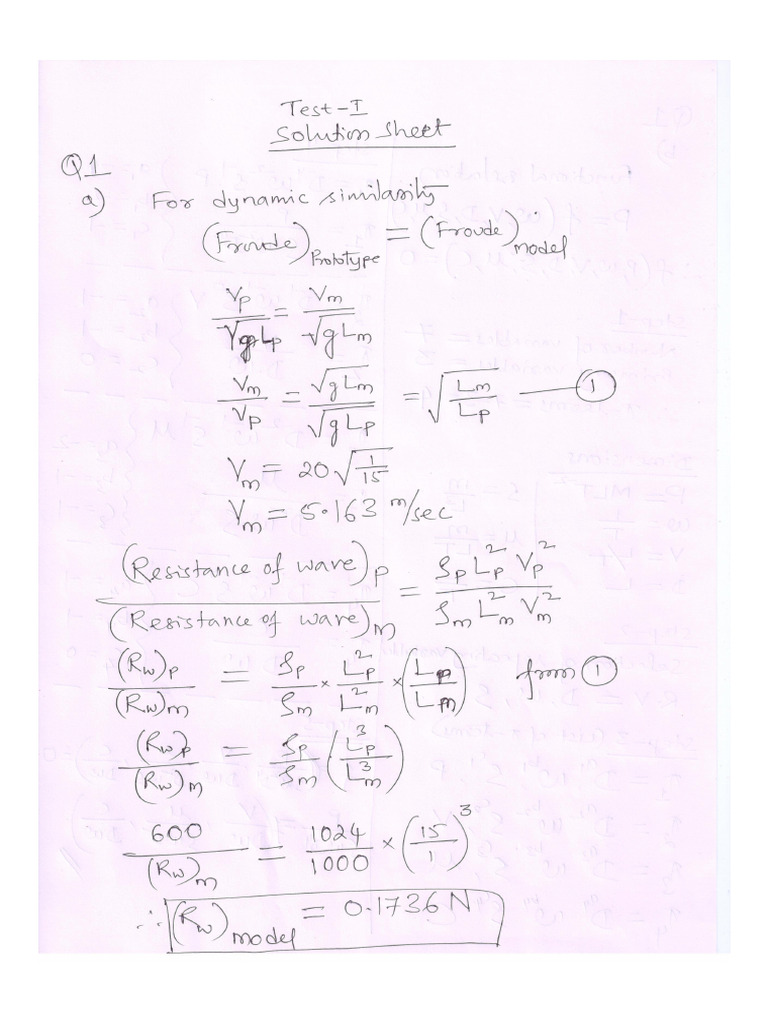 Test-I
Solution Sheet
Q1
a) For dynamic similarity
(Froude)Prototype = (Froude)model
Vp/√gLp = Vm/√gLm
Vm/Vp = √gLm/√gLp = √(Lm/Lp) — ①
Vm = 20√(1/15)
Vm = 5.163 m/sec
(Resistance of wave)p/(Resistance of wave)m = ρp Lp² Vp²/ρm Lm² Vm²
(Rw)p/(Rw)m = ρp/ρm × Lp²/Lm² × (Lp/Lm) from ①
(Rw)p/(Rw)m = ρp/ρm (Lp³/Lm³)
600/(Rw)m = 1024/1000 × (15/1)³
∴ (Rw)model = 0.1736 N